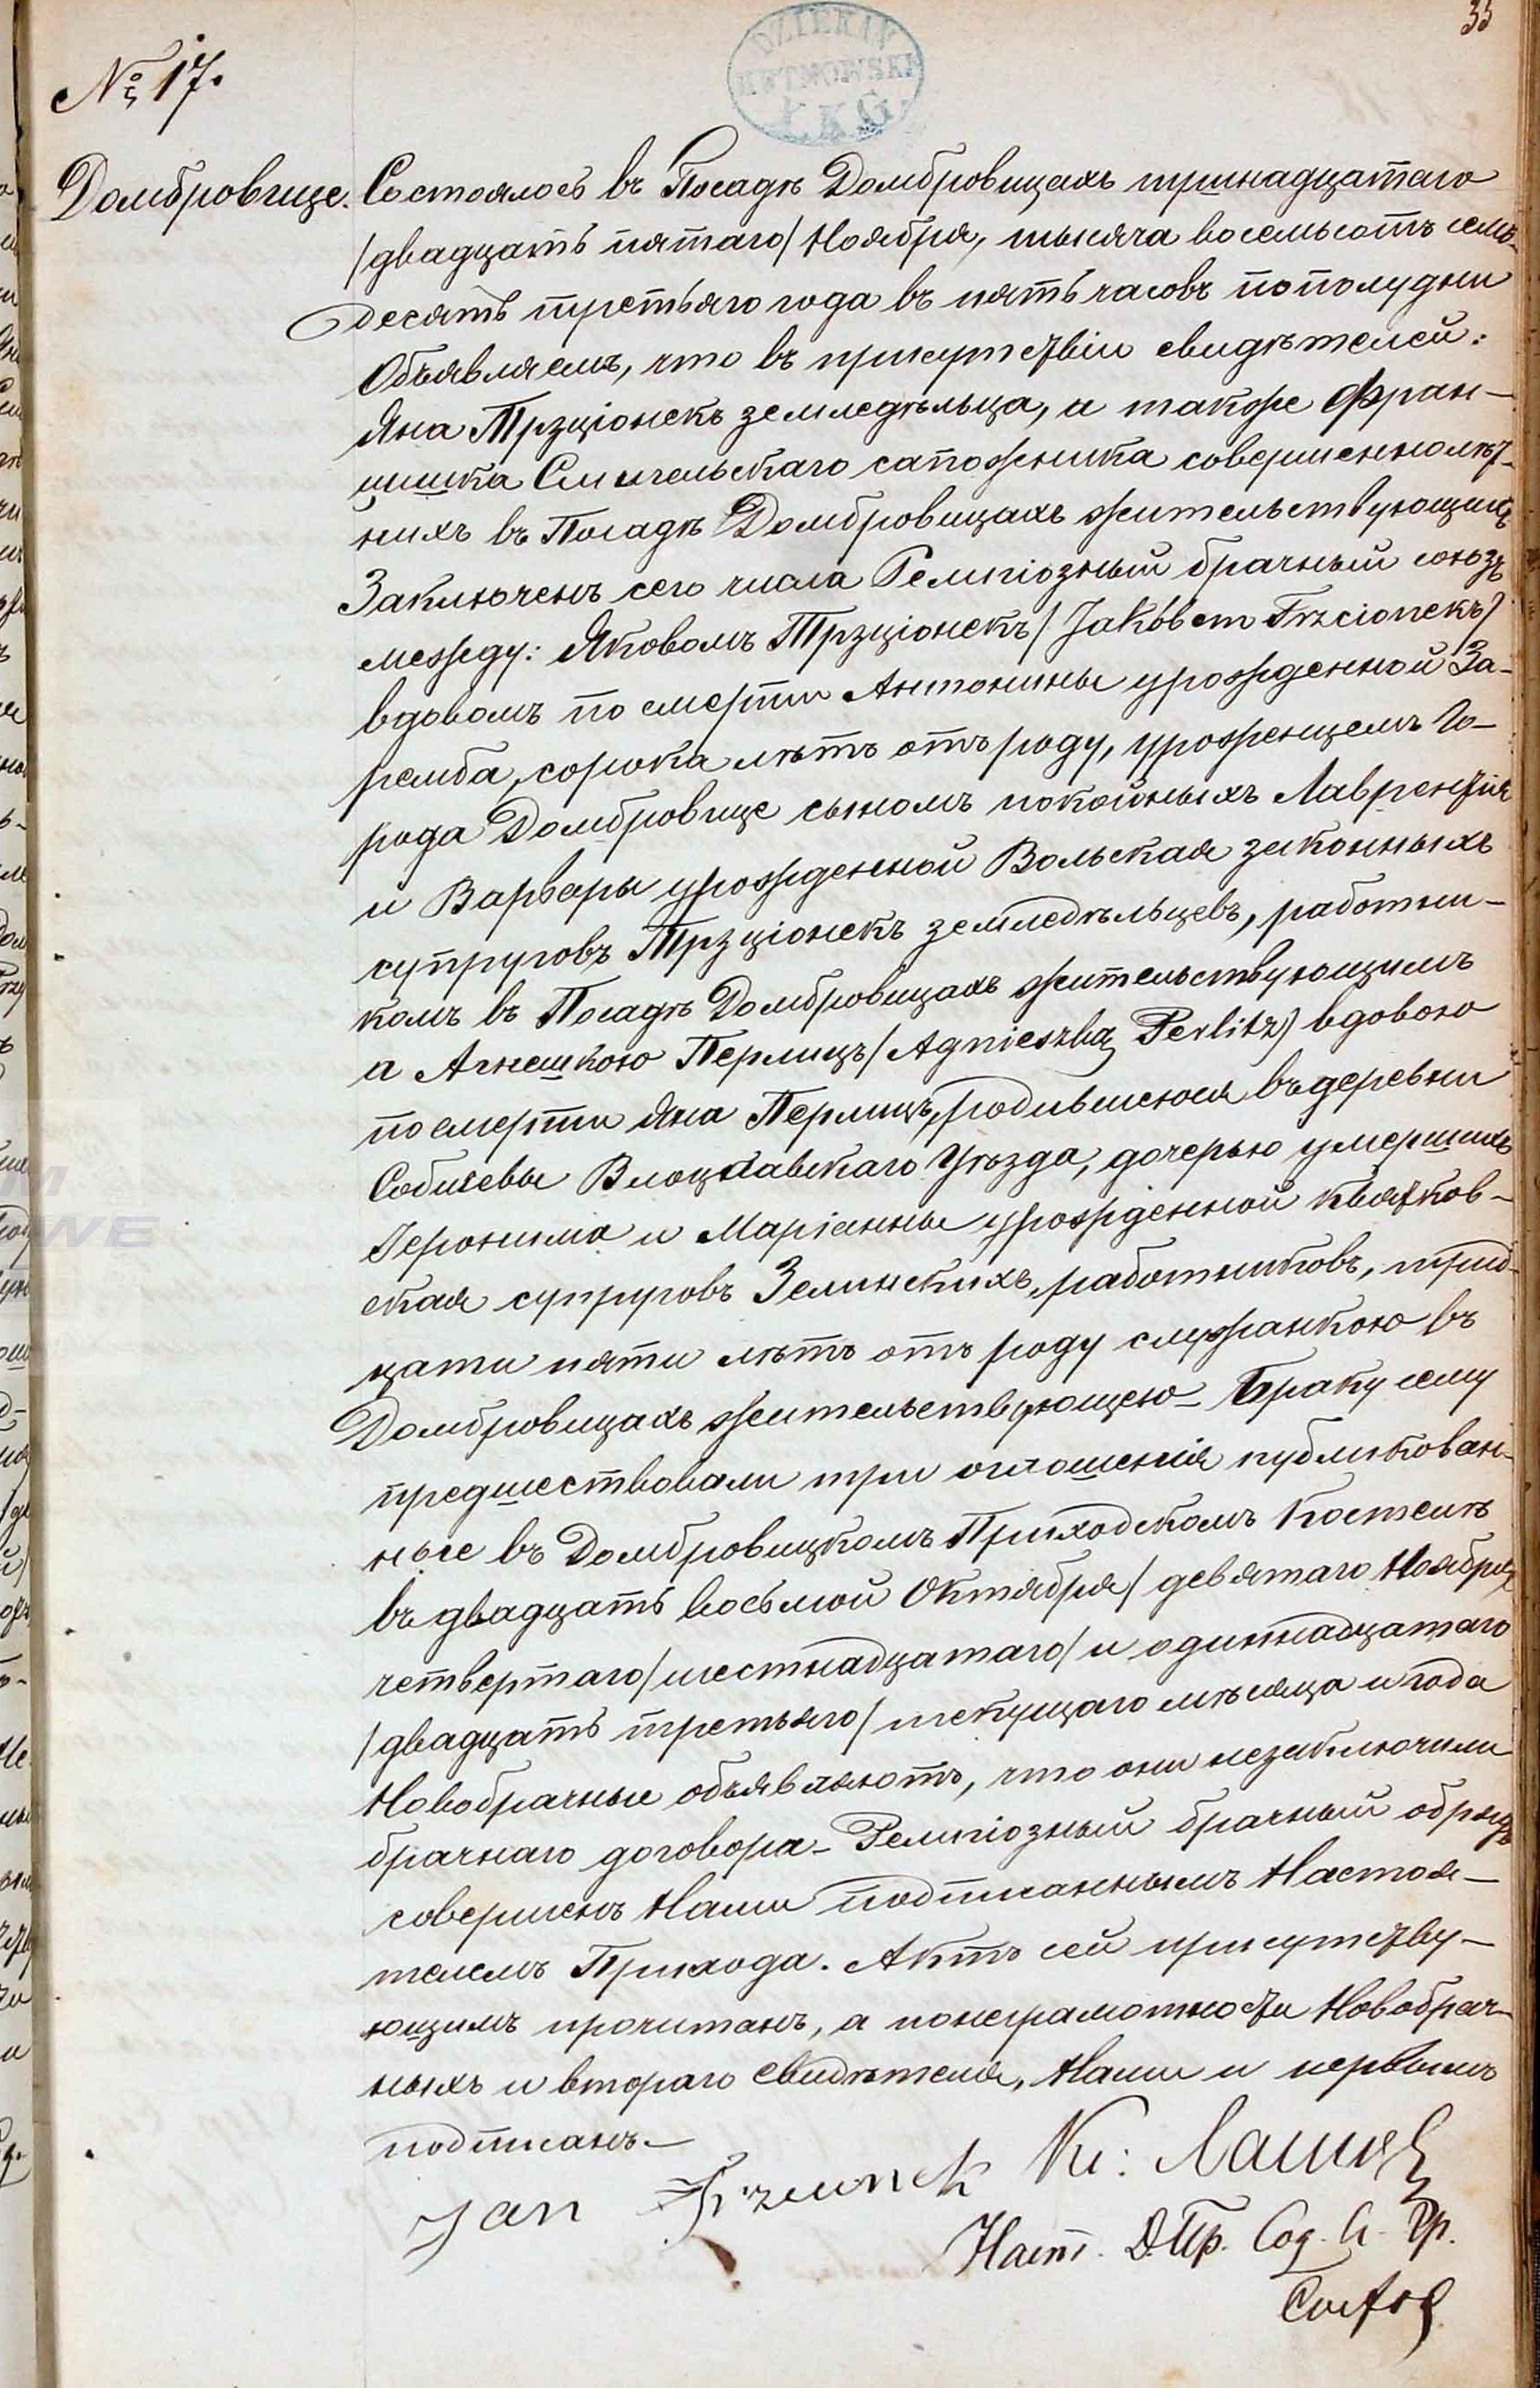 33
DZIEKAN
KUTNOWSKI
Ł K G
№ 17.
Домбровице. Состоялось въ Посадѣ Домбровицахъ тринадцатаго
/двадцать пятаго/ Ноября, тысяча восемьсотъ семь-
десятъ третьяго года въ пять часовъ пополудни
Объявляемъ, что въ присутствіи свидѣтелей:
Яна Трзціонекъ земледѣльца, а также Фран-
цишка Смигельскаго сапожника совершеннолѣт-
нихъ въ Посадѣ Домбровицахъ жительствующихъ
Заключенъ сего числа Религіозный брачный союзъ
между: Яковомъ Трзціонекъ /Jakóbem Trzcionekъ/
вдовомъ по смерти Антонины урожденной За-
ремба, сорока лѣтъ отъ роду, уроженцемъ Го-
рода Домбровице сыномъ покойныхъ Лаврентія
и Варвары урожденной Вольская законныхъ
супруговъ Трзціонекъ земледѣльцевъ, работни-
комъ въ Посадѣ Домбровицахъ жительствующимъ
а Агнешкою Перлицъ /Agnieszką Perlitz/ вдовою
по смерти Яна Перлицъ, родившеюся въ деревни
Влоцлавскаго Уѣзда, дочерью умершихъ
Іеронима и Маріанны урожденной Квятков-
ская супруговъ Зелинскихъ, работниковъ, трид-
цати пяти лѣтъ отъ роду служанкою въ
Домбровицахъ жительствующею – Браку сему
предшествовали три оглашенія публикован-
ные въ Домбровицкомъ Приходскомъ Костелѣ
въ двадцать восьмой Октября / девятаго Ноября,
четвертаго /шестнадцатаго/ и одиннадцатаго
/двадцать третьяго/ текущаго мѣсяца и года
Новобрачные объявляютъ, что они незаключили
брачнаго договора – Религіозный брачный обрядъ
совершенъ Нами подписаннымъ Настоя-
телемъ Прихода. Актъ сей присутству-
ющимъ прочитанъ, а понеграмотности Новобрач-
ныхъ и втораго свидѣтеля, Нами и первымъ
подписанъ –
Jan Кс:
Наст. Д. Пр. Сод. А. Гр.
Сост.